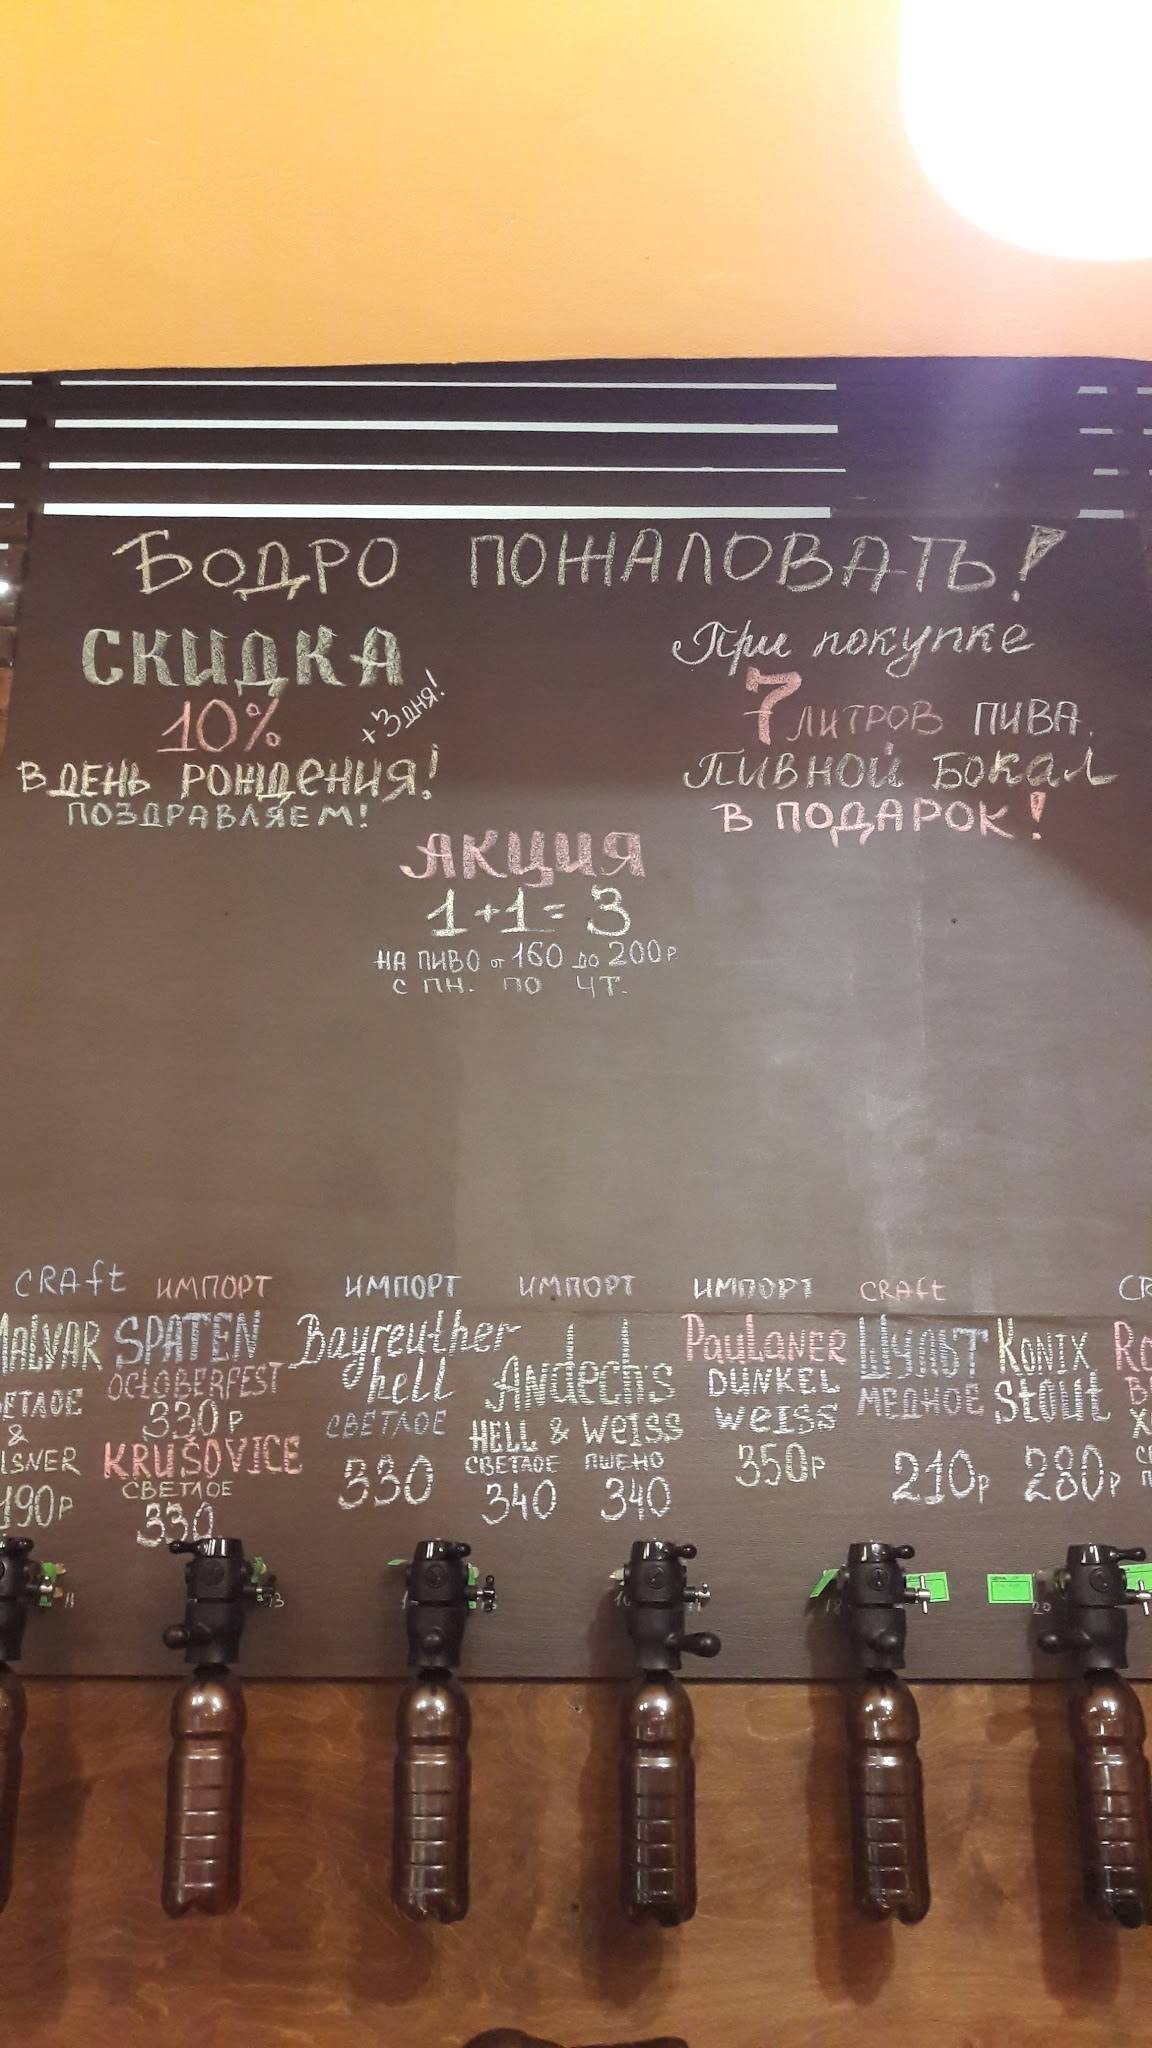 БОДРО ПОЖАЛОВАТЬ!
СКИДКА
10%
+3 ДНЯ!
В ДЕНЬ РОЖДЕНИЯ!
ПОЗДРАВЛЯЕМ!
При покупке
7 ЛИТРОВ ПИВА.
ПИВНОЙ БОКАЛ
В ПОДАРОК!
АКЦИЯ
1+1=3
НА ПИВО от 160 до 200р
С ПН. ПО ЧТ.
CRAft
MALVAR
ЕТЛОЕ
&
LSNER
190Р
ИМПОРТ
SPATEN
OCTOBERFEST
330Р
KRUŠOVICE
СВЕТЛОЕ
330
ИМПОРТ
Bayreuther
hell
СВЕТЛОЕ
330
ИМПОРТ
Andech's
HELL & WEISS
СВЕТЛОЕ ПШЕНО
340 340
ИМПОРТ
PAULANER
DUNKEL
WEISS
350Р
CRAft
МЕДНОЕ
210Р
KONIX
Stout
280Р
CR
RO